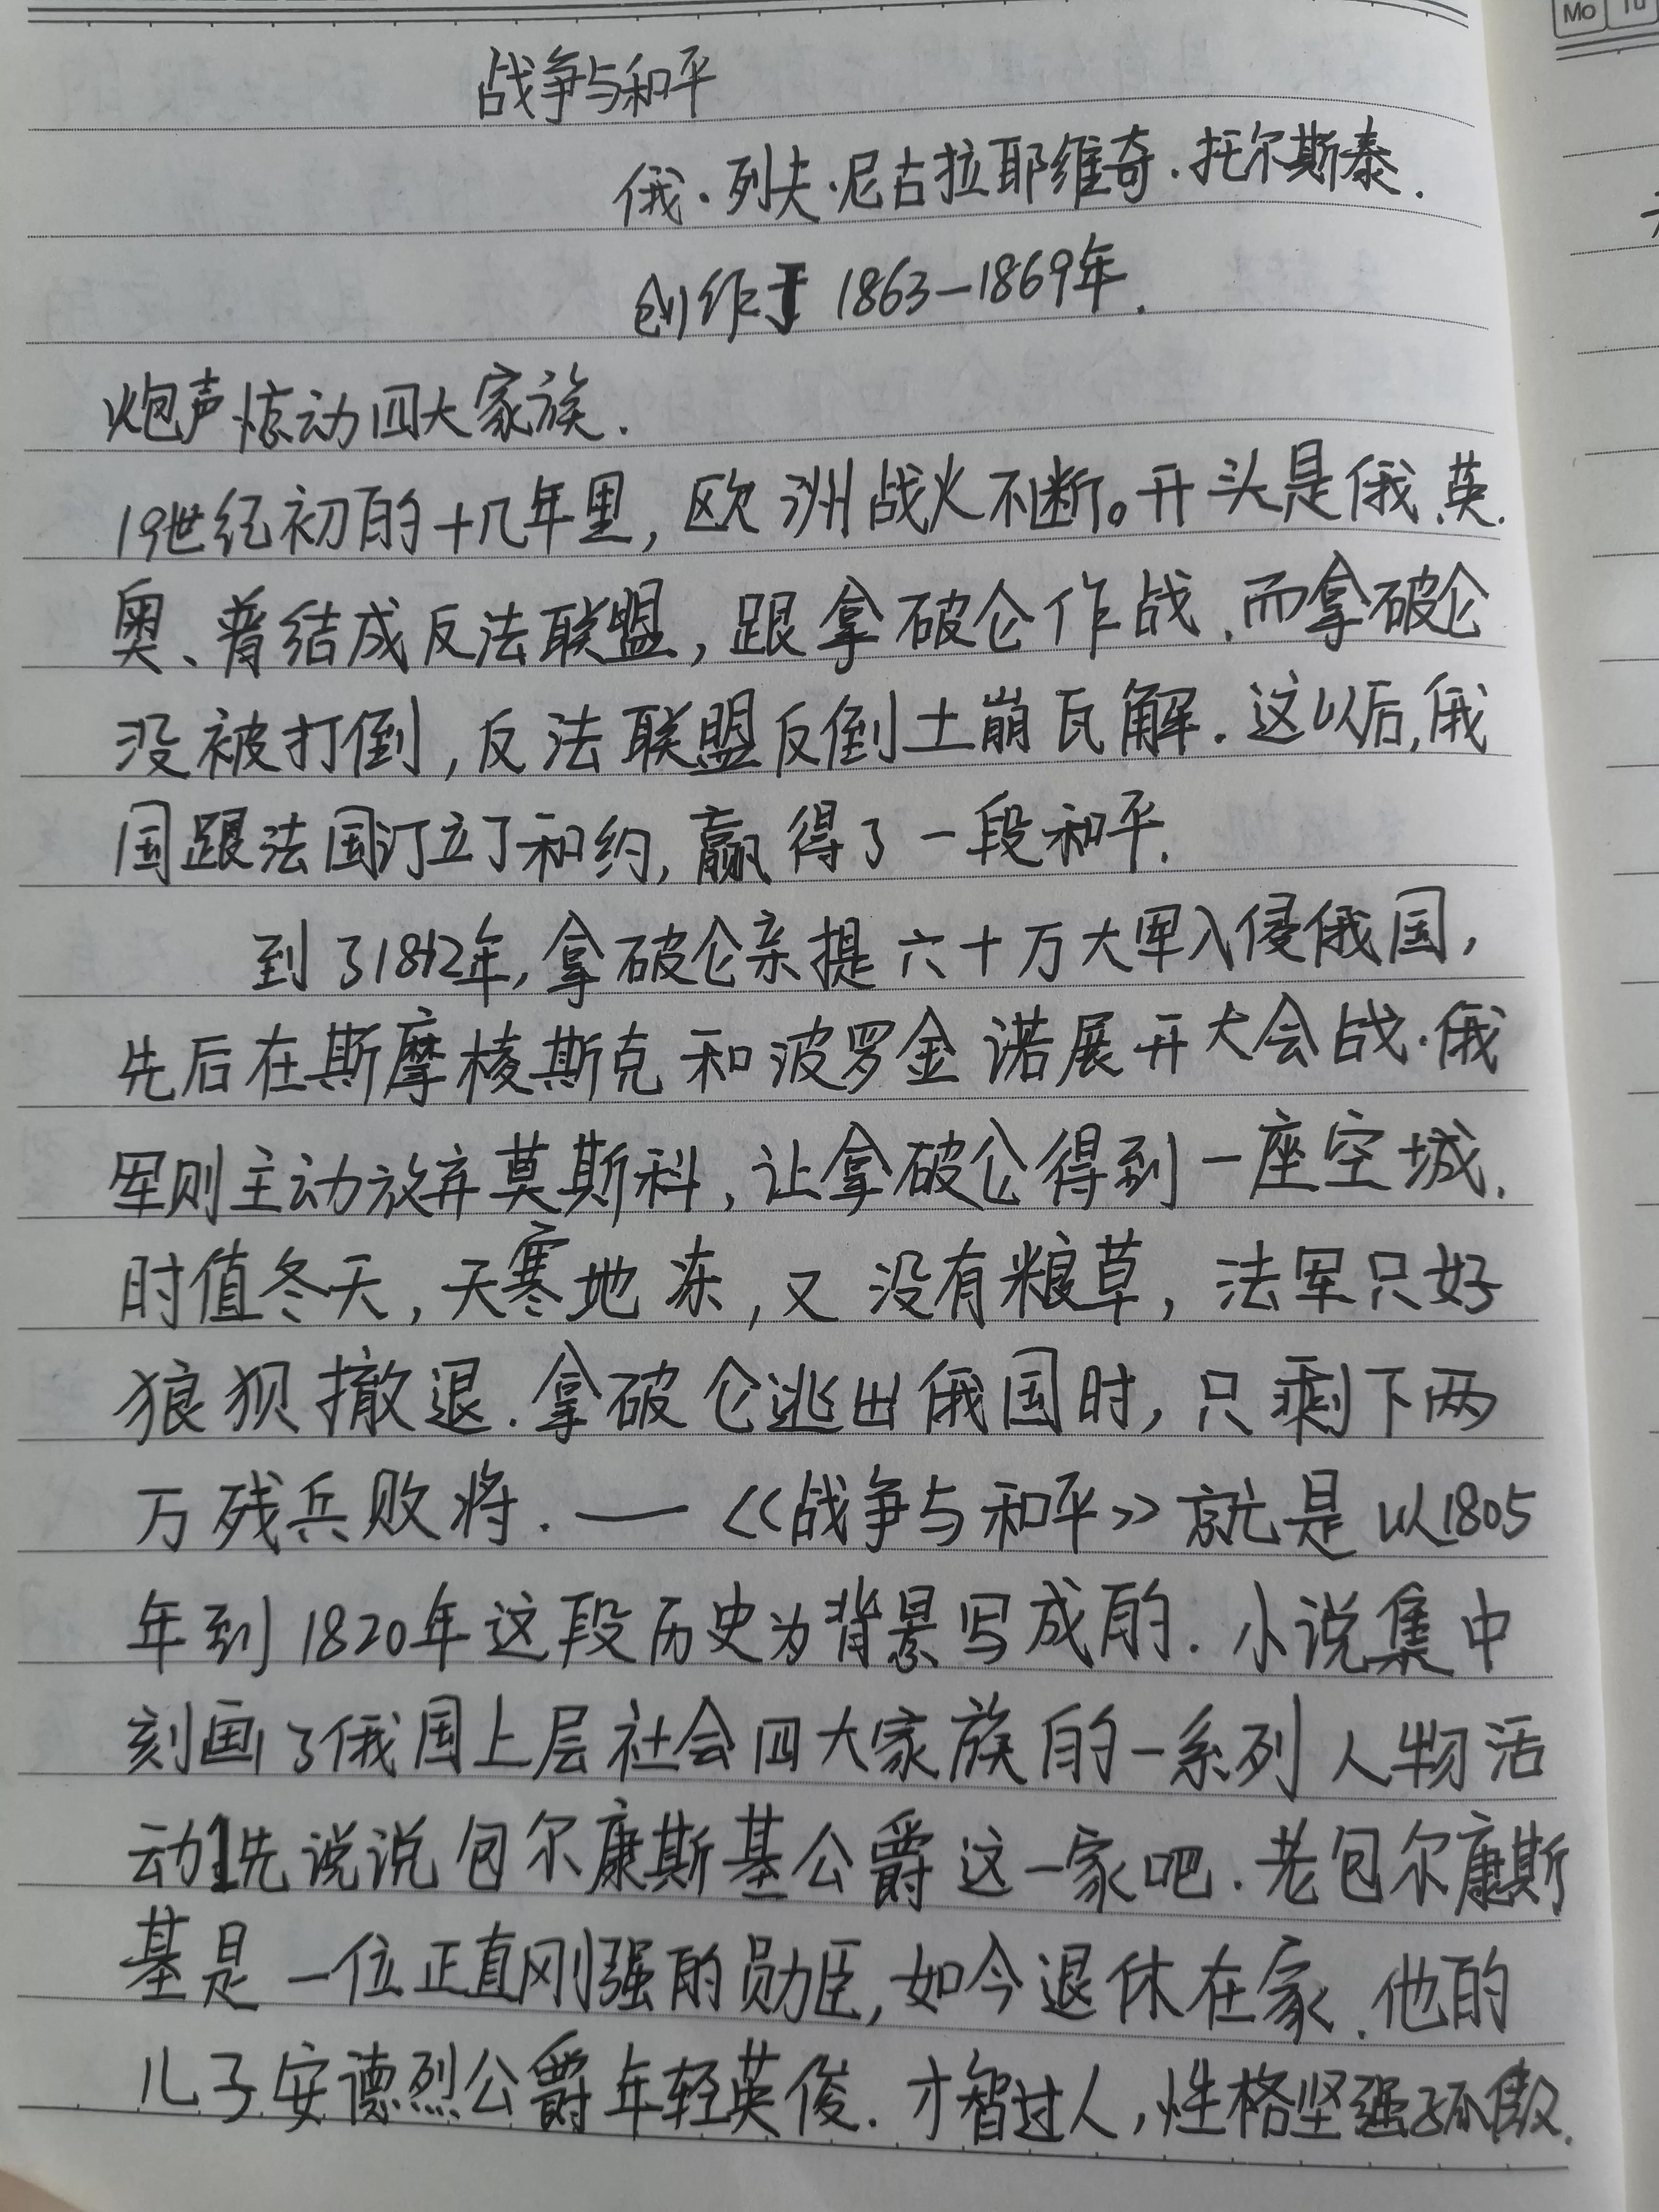 战争与和平
俄·列夫·尼古拉耶维奇·托尔斯泰.
创作于1863—1869年.
炮声惊动四大家族.
19世纪初的十几年里,欧洲战火不断。开头是俄、英.
奥、普结成反法联盟,跟拿破仑作战.而拿破仑
没被打倒,反法联盟反倒土崩瓦解.这以后,俄
国跟法国订立了和约,赢得了一段和平.
到了1812年,拿破仑亲提六十万大军入侵俄国,
先后在斯摩棱斯克和波罗金诺展开大会战.俄
军则主动放弃莫斯科,让拿破仑得到一座空城.
时值冬天,天寒地冻,又没有粮草,法军只好
狼狈撤退.拿破仑逃出俄国时,只剩下两
万残兵败将.——《战争与和平》就是以1805
年到1820年这段历史为背景写成的.小说集中
刻画了俄国上层社会四大家族的一系列人物活
动先说说包尔康斯基公爵这一家吧.老包尔康斯
基是一位正直刚强的勋臣,如今退休在家.他的
儿子安德烈公爵年轻英俊.才智过人,性格坚强孤傲.
Mo Tu